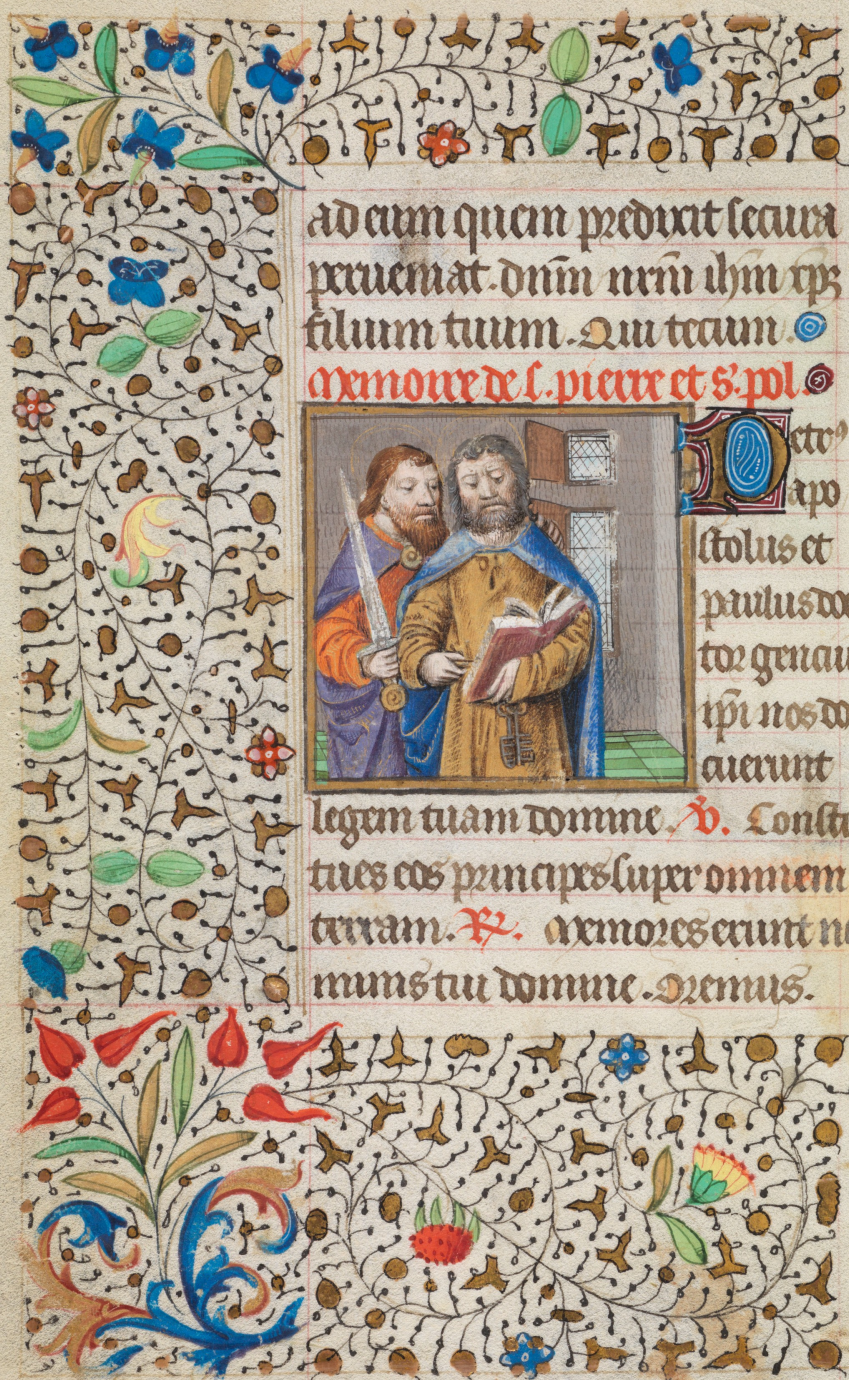 ad eum quem predixit secura
perueniat. dnm̄ nrm̄ ihm̄ xp̄
filium tuum. Qui tecum.
Memoire de s. pierre et s. pol.
Petrꝰ
apo
stolus et
paulus doc
tor genciu
ip̄i nos do
cuerunt
legem tuam domine. V. Consti
tues eos principes super omnem
terram. R. Memores erunt no
minis tui domine. Oremus.